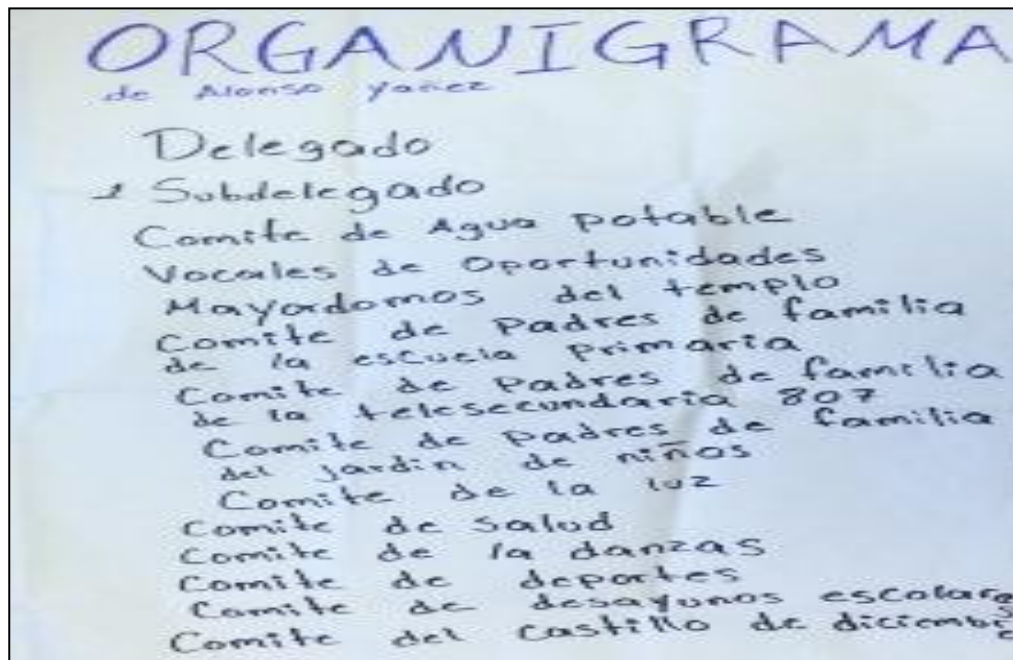 ORGANIGRAMA
de Alonso Yañez
Delegado
Subdelegado
Comite de Agua potable
Vocales de Oportunidades
Mayordomos del templo
Comite de Padres de familia
de la escuela Primaria
Comite de Padres de familia
de la telesecundaria 807
Comite de padres de familia
del jardin de niños
Comite de la luz
Comite de Salud
Comite de la danzas
Comite de deportes
Comite de desayunos escolares
Comite del castillo de diciembre